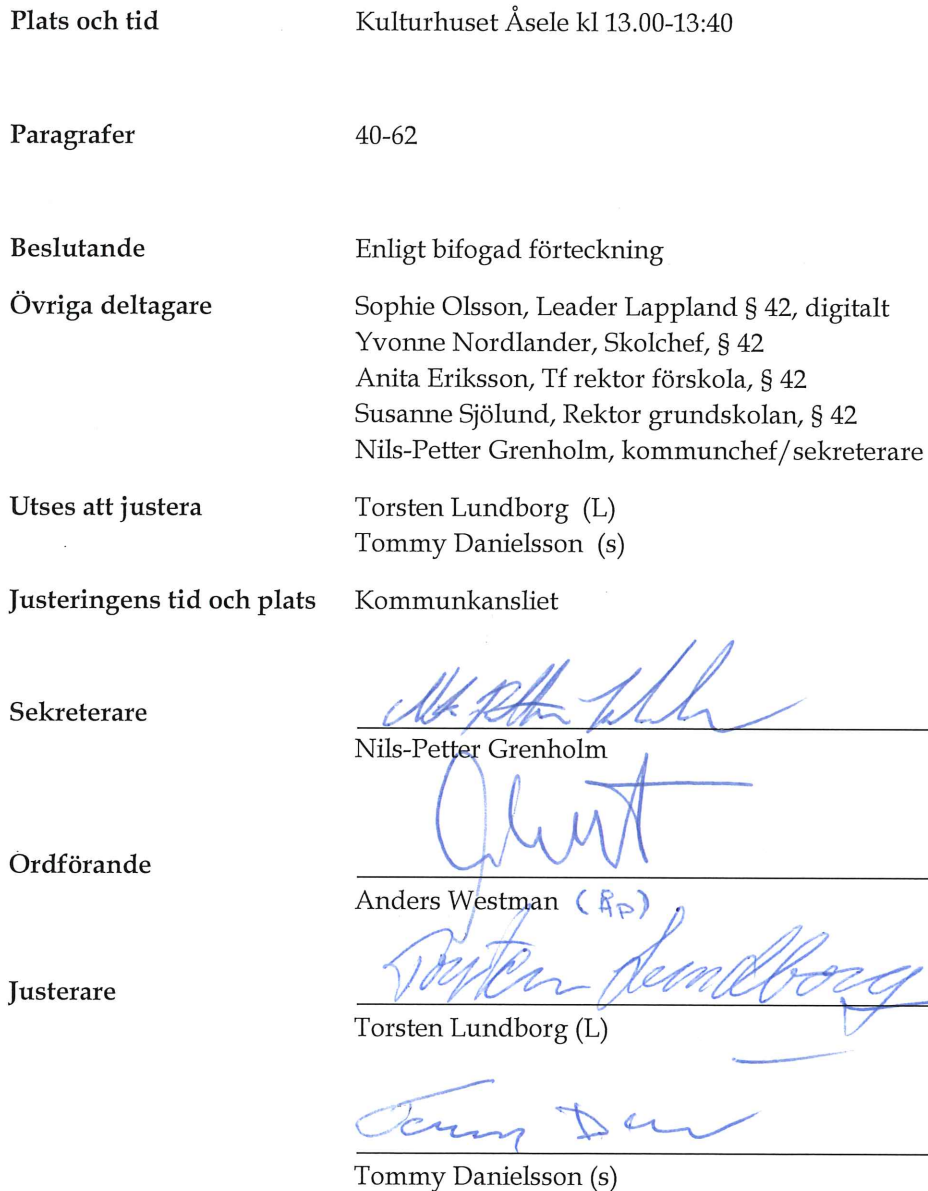 Plats och tid Kulturhuset Åsele kl 13.00-13:40
Paragrafer 40-62
Beslutande Enligt bifogad förteckning
Övriga deltagare Sophie Olsson, Leader Lappland § 42, digitalt
Yvonne Nordlander, Skolchef, § 42
Anita Eriksson, Tf rektor förskola, § 42
Susanne Sjölund, Rektor grundskolan, § 42
Nils-Petter Grenholm, kommunchef/sekreterare
Utses att justera Torsten Lundborg (L)
Tommy Danielsson (s)
Justeringens tid och plats Kommunkansliet
Sekreterare
Nils-Petter Grenholm
Ordförande
Anders Westman (Åp)
Justerare Torsten Lundborg
Torsten Lundborg (L)
Tommy Danielsson (s)